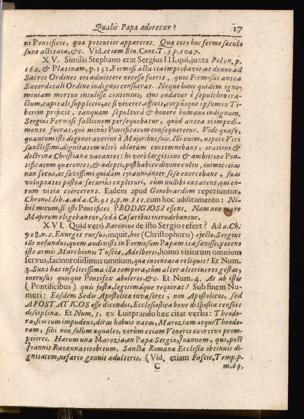 Qualis Papa adoretur? 17
ni Pontificis, qua potenter appareres. Qua toto hoc ferme sæculo
sunt actitata, &c. Vid. etiam Bin. Conc. T. 3. p. 1047.
X V. Similis Stephano erat Sergius III. qui, juxta Polon. p.
162. & Platinam, p. 132. Formosi acta ita improbavit ac denuo ad
Sacros Ordines eos admittere necesse fuerit, quos Formosus antea
Sacerdotali Ordine dignos censuerat. Neque hanc quidem igno-
miniam mortuo intulisse contentus, ejus cadaver è sepulchro tra-
ctum, capitali supplicio, ac si viveret, afficit, corpúsque ipsum in Ti-
berim projicit, tanquam sepultura & honore humano indignum.
Sergius Formosi factionem persequebatur, quod antea is impedi-
mento fuerat, quò minùs Pontificatum consequeretur. Vide quæso,
quantum isti degeneraverint à Majoribus suis. Illi enim, utpote Viri
sanctissimi, dignitatem ultrò oblatam contemnebant, orationi &
doctrinæ Christianæ vacantes: hi verò largitione & ambitione Pon-
tificatum quærentes, & adepti, posthabito divino cultu, inimicitias
non secus, ac sævissimi quidam tyranni inter se exercebant, suas
voluptates postea securiùs expleturi, cum nullibi extarent, qui eo-
rum vitia coërcerent. Eadem apud Genebrardum reperiuntur,
Chronol. lib. 4. ad a. Ch. 913. p. m. 111. cum hoc additamento: Ni-
hil mirum, si isti Pontifices PRODIGIOSI essent, Nam non
Majorum eligebantur, sed à Cæsaribus intrudebantur.
X V I. Quid verò Baronius de isto Sergio refert? Ad a. Ch.
908. n. 2. Exurgit rursus, inquit, hoc (Christophoro) expulso, Sergius
ille nefandus, quem audistis in Formosum Papam ita sævisse, potens
iste armis Marchionis Tusciæ, Adelberti, homo vitiorum omnium
servus, facinorosissimus omnium, quæ intentata reliquit? Et Num.
3. Sunt hæc infelicissima illa tempora, cùm alter alterius res gestas,
intrusus quisque Pontifex aboleret, &c. Et Num. 4. At ab istis
(Pontificibus) quis justa, legitimáque requirat? Subfinem Nu-
meri: Eosdem Sedis Apostolicæ invasores, non Apostolicos, sed
APOSTATICOS esse dicendos, Ecclesiastica bene disposita censuit
disciplina. Et Num. 5. ex Luitprando hæc citat verba: Theodo-
ra, scortum impudens, duas habuit natas, Maroziam atque Theodo-
ram, sibi non solùm æquales, verùm etiam Veneris exercitio prom-
ptiores. Harum una Marozia, ex Papa Sergio, Joannem, qui, post
Joannis Ravennatis obitum, Sanctæ Romanæ Ecclesiæ obtinuit di-
gnitatem, nefario genuit adulterio. (Vid. etiam Fascic. Temp. p.
C m. 69.